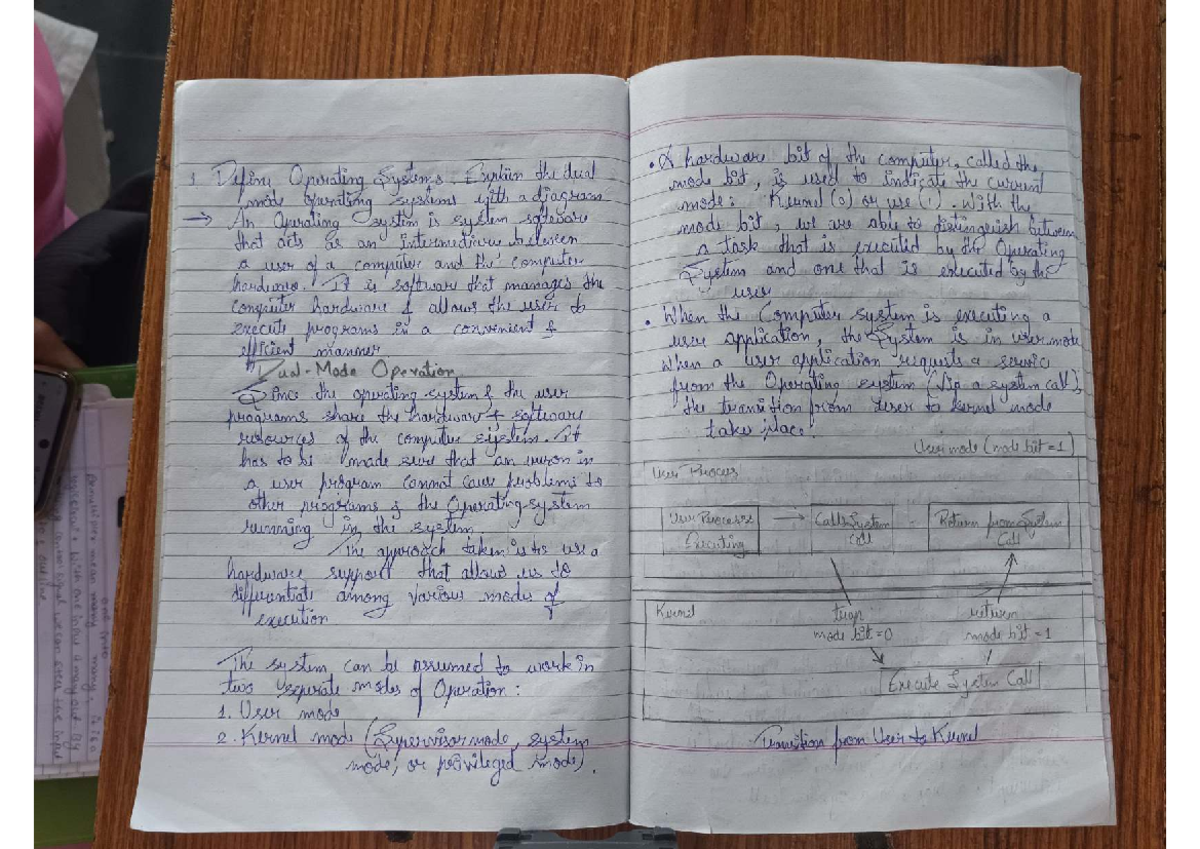 1 Define Operating Systems. Explain the dual
mode operating systems with a diagram
→ An Operating system is system software
that acts as an intermediary between
a user of a computer and the computer
hardware. It is software that manages the
computer hardware & allows the user to
execute programs in a convenient &
efficient manner.
Dual-Mode Operation
Since the operating system & the user
programs share the hardware & software
resources of the computer system. It
has to be made sure that an error in
a user program cannot cause problems to
other programs & the Operating system
running in the system
The approach taken is to use a
hardware support that allows us to
differentiate among various modes of
execution
The system can be assumed to work in
two separate modes of Operation:
1. User mode
2. Kernel mode (Supervisor mode, system
mode, or privileged mode).
• A hardware bit of the computer, called the
mode bit, is used to indicate the current
mode: Kernel (0) or use (1). With the
mode bit, we are able to distinguish between
a task that is executed by the Operating
System and one that is executed by the
user
• When the Computer system is executing a
user application, the System is in user mode
When a user application requests a service
from the Operating system (via a system call),
the transition from user to kernel mode
take place.
User mode (mode bit = 1)
User Process
User Processe
Executing
→ Calls System
Call
Return from System
Call
Kernel
trap
mode bit = 0
return
mode bit = 1
Execute System Call
Transition from User to Kernel